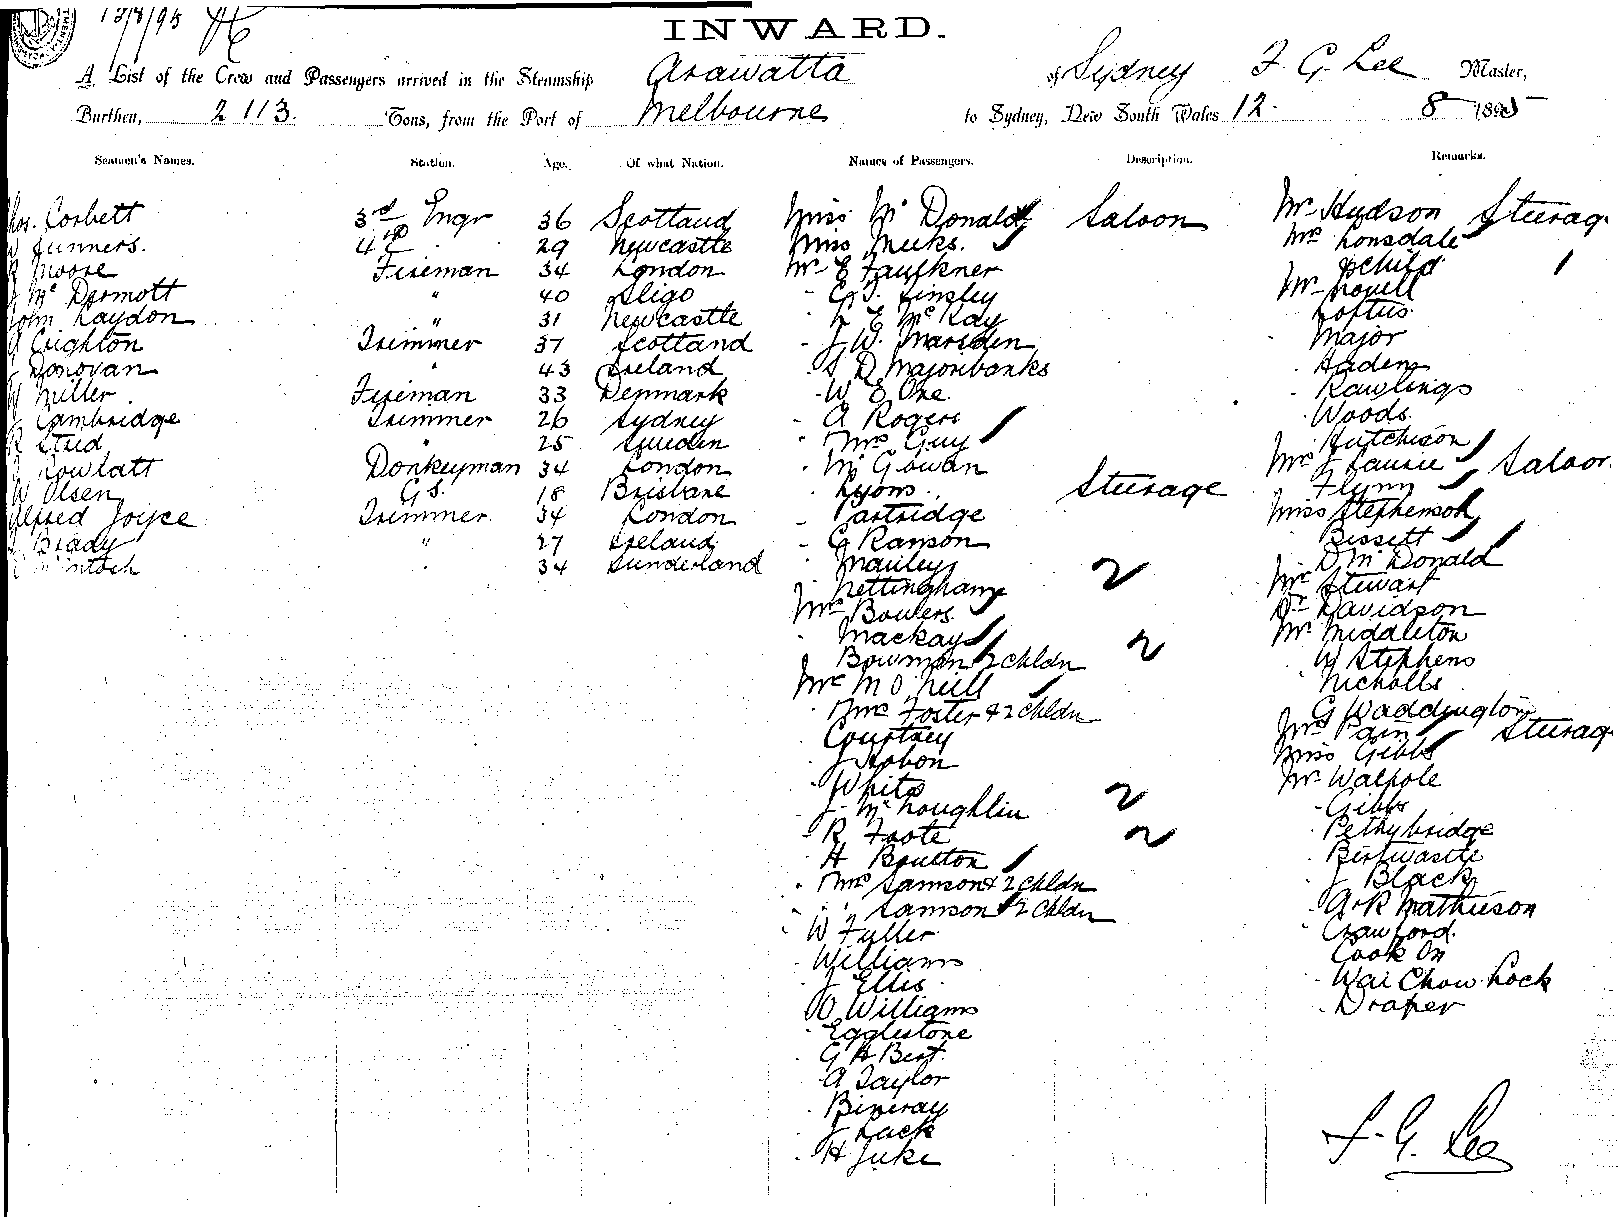 13/8/95
INWARD.
A List of the Crew and Passengers arrived in the Steamship Arawatta of Sydney F. G. Lee Master,
Burthen, 2113. Tons, from the Port of Melbourne to Sydney, New South Wales 12. 8 1895
Seamen's Names. Station. Age. Of what Nation. Names of Passengers. Description. Remarks.
Corbett 3rd Engr 36 Scotland
Junners. 4th 29 Newcastle
Moore Fireman 34 London
Mc Dermott " 40 Sligo
John Haydon " 31 Newcastle
Crighton Trimmer 37 Scotland
Donovan " 43 Ireland
Miller Fireman 33 Denmark
Cambridge Trimmer 26 Sydney
R Stud " 25 Sweden
Rowlatt Donkeyman 34 London
W Olsen G.S. 18 Brisbane
Alfred Joyce Trimmer 34 London
Brady " 27 Ireland
34 Sunderland
Miss Mc Donald Saloon
Miss Meeks.
Mr E Faulkner
E. T. Linsley
Mc Kay
J. W. Marsden
Majoribanks
W E Oxe
A Rogers
Mrs Guy
McGowan
Lyons Steerage
Partridge
G Ranson
Manley 2
Nettingham
Mrs Bowers
Mackay 2
Bowman 2 Chldn
Mr M O'Neill
Mrs Foster & 2 Chldn
Courtney
J Hobon
White 2
J. McLoughlin
R Foote 2
H Boulton
Mrs Samson & 2 Chldn
" Samson & 2 Chldn
W Fuller
Williams
J Ellis
O Williams
Egglestone
G H Bent
A Taylor
Biveray
J Luck
H Juke
Mr Hudson Steerage
Mrs Lonsdale
& child 1
Mr Lovell
Loftus
Major
Haden
Rawlings
Woods
Hutchison
Mrs J Laurie Saloon
Flynn
Miss Stephenson
Bissett
D Mc Donald
Mr Stewart
Dr Davidson
Mr Middleton
W Stephens
Nicholls
G Waddington
Mrs Pain Steerage
Miss Gibbs
Mr Walpole
Gibbs
Pethybridge
Birtwastle
J Black
A. R Mathieson
Crawford
Cook On
Wai Chow Lock
Draper
F. G. Lee